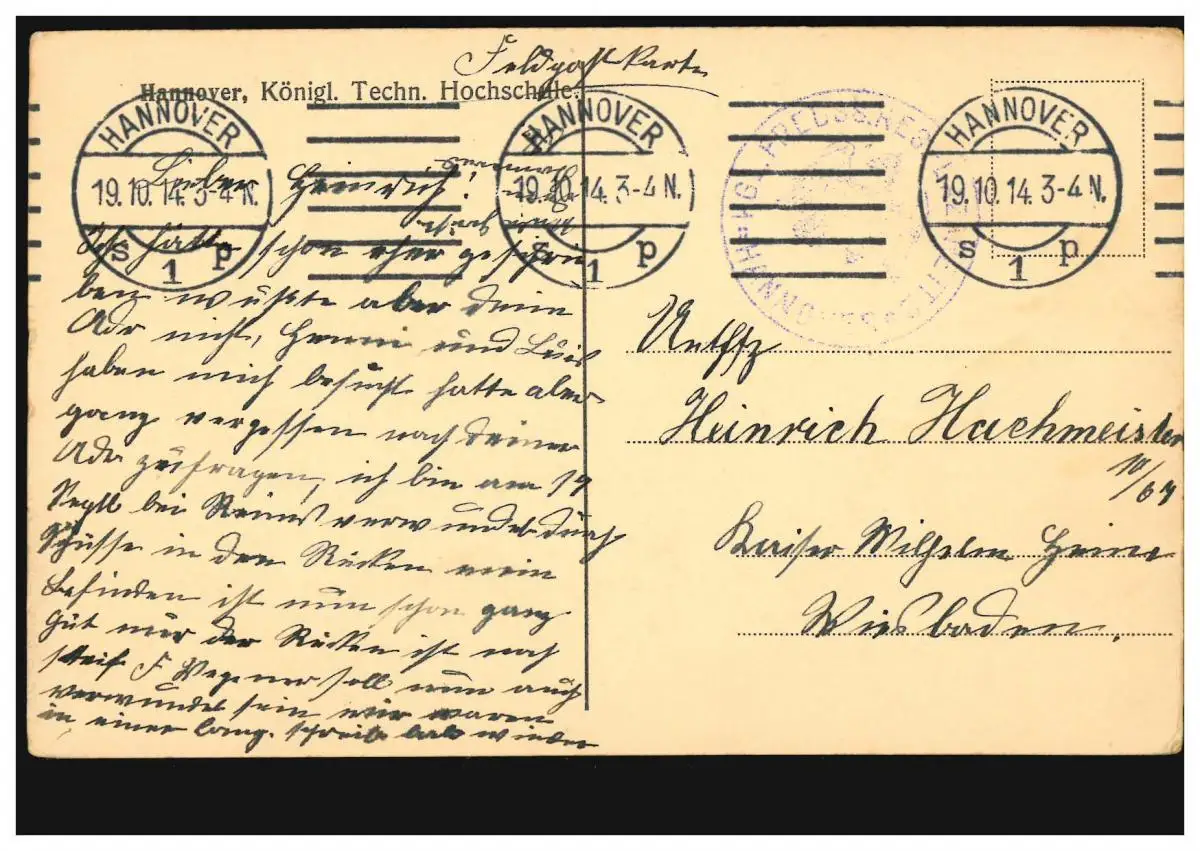 Feldpostkarte
Hannover, Königl. Techn. Hochschule.
HANNOVER
19.10.14.3-4 N.
s 1 p
HANNOVER
19.10.14.3-4 N.
s 1 p
HANNOVER
19.10.14.3-4 N.
s 1 p
KGL. PREUSS. RES
HANNOVER
Lieber Heinrich!
Ich hätte schon eher geschrie
ben wußte aber deine
Adr nicht, Henni und Luis
haben mich besucht hatte aber
ganz vergessen nach deiner
Adr zufragen, ich bin am 19
Sept bei Reims verwundet durch
Schüsse in den Rücken mein
Befinden ist nun schon ganz
gut nur der Rücken ist noch
steif F Wegener soll nun auch
verwundet sein wir waren
in einer Comp. schreib bald wieder
Heinrich Hachmeister
10/
Kaiser Wilhelm Heim
Wiesbaden.